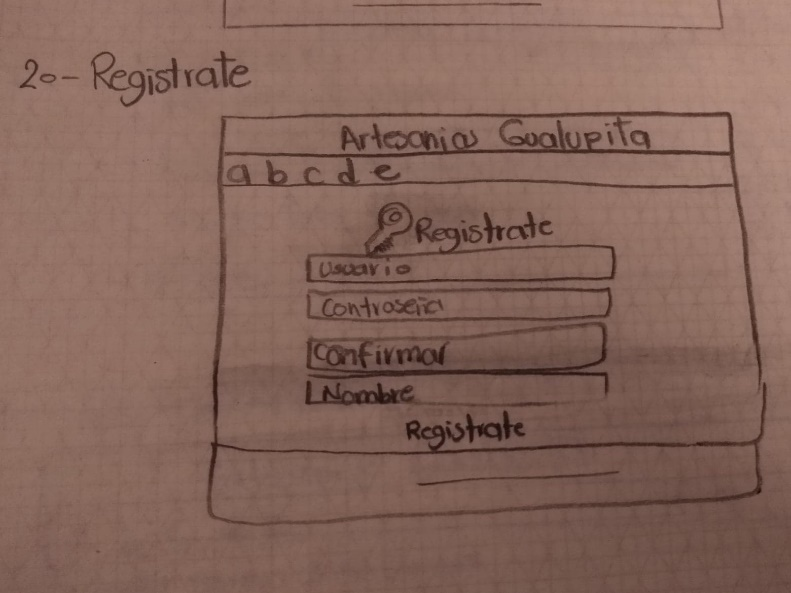 20- Registrate
Artesanias Gualupita
a b c d e
Registrate
Usuario
Contraseña
Confirmar
Nombre
Registrate